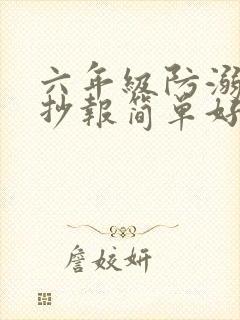 六年级防溺
抄報简單好
詹姣妍